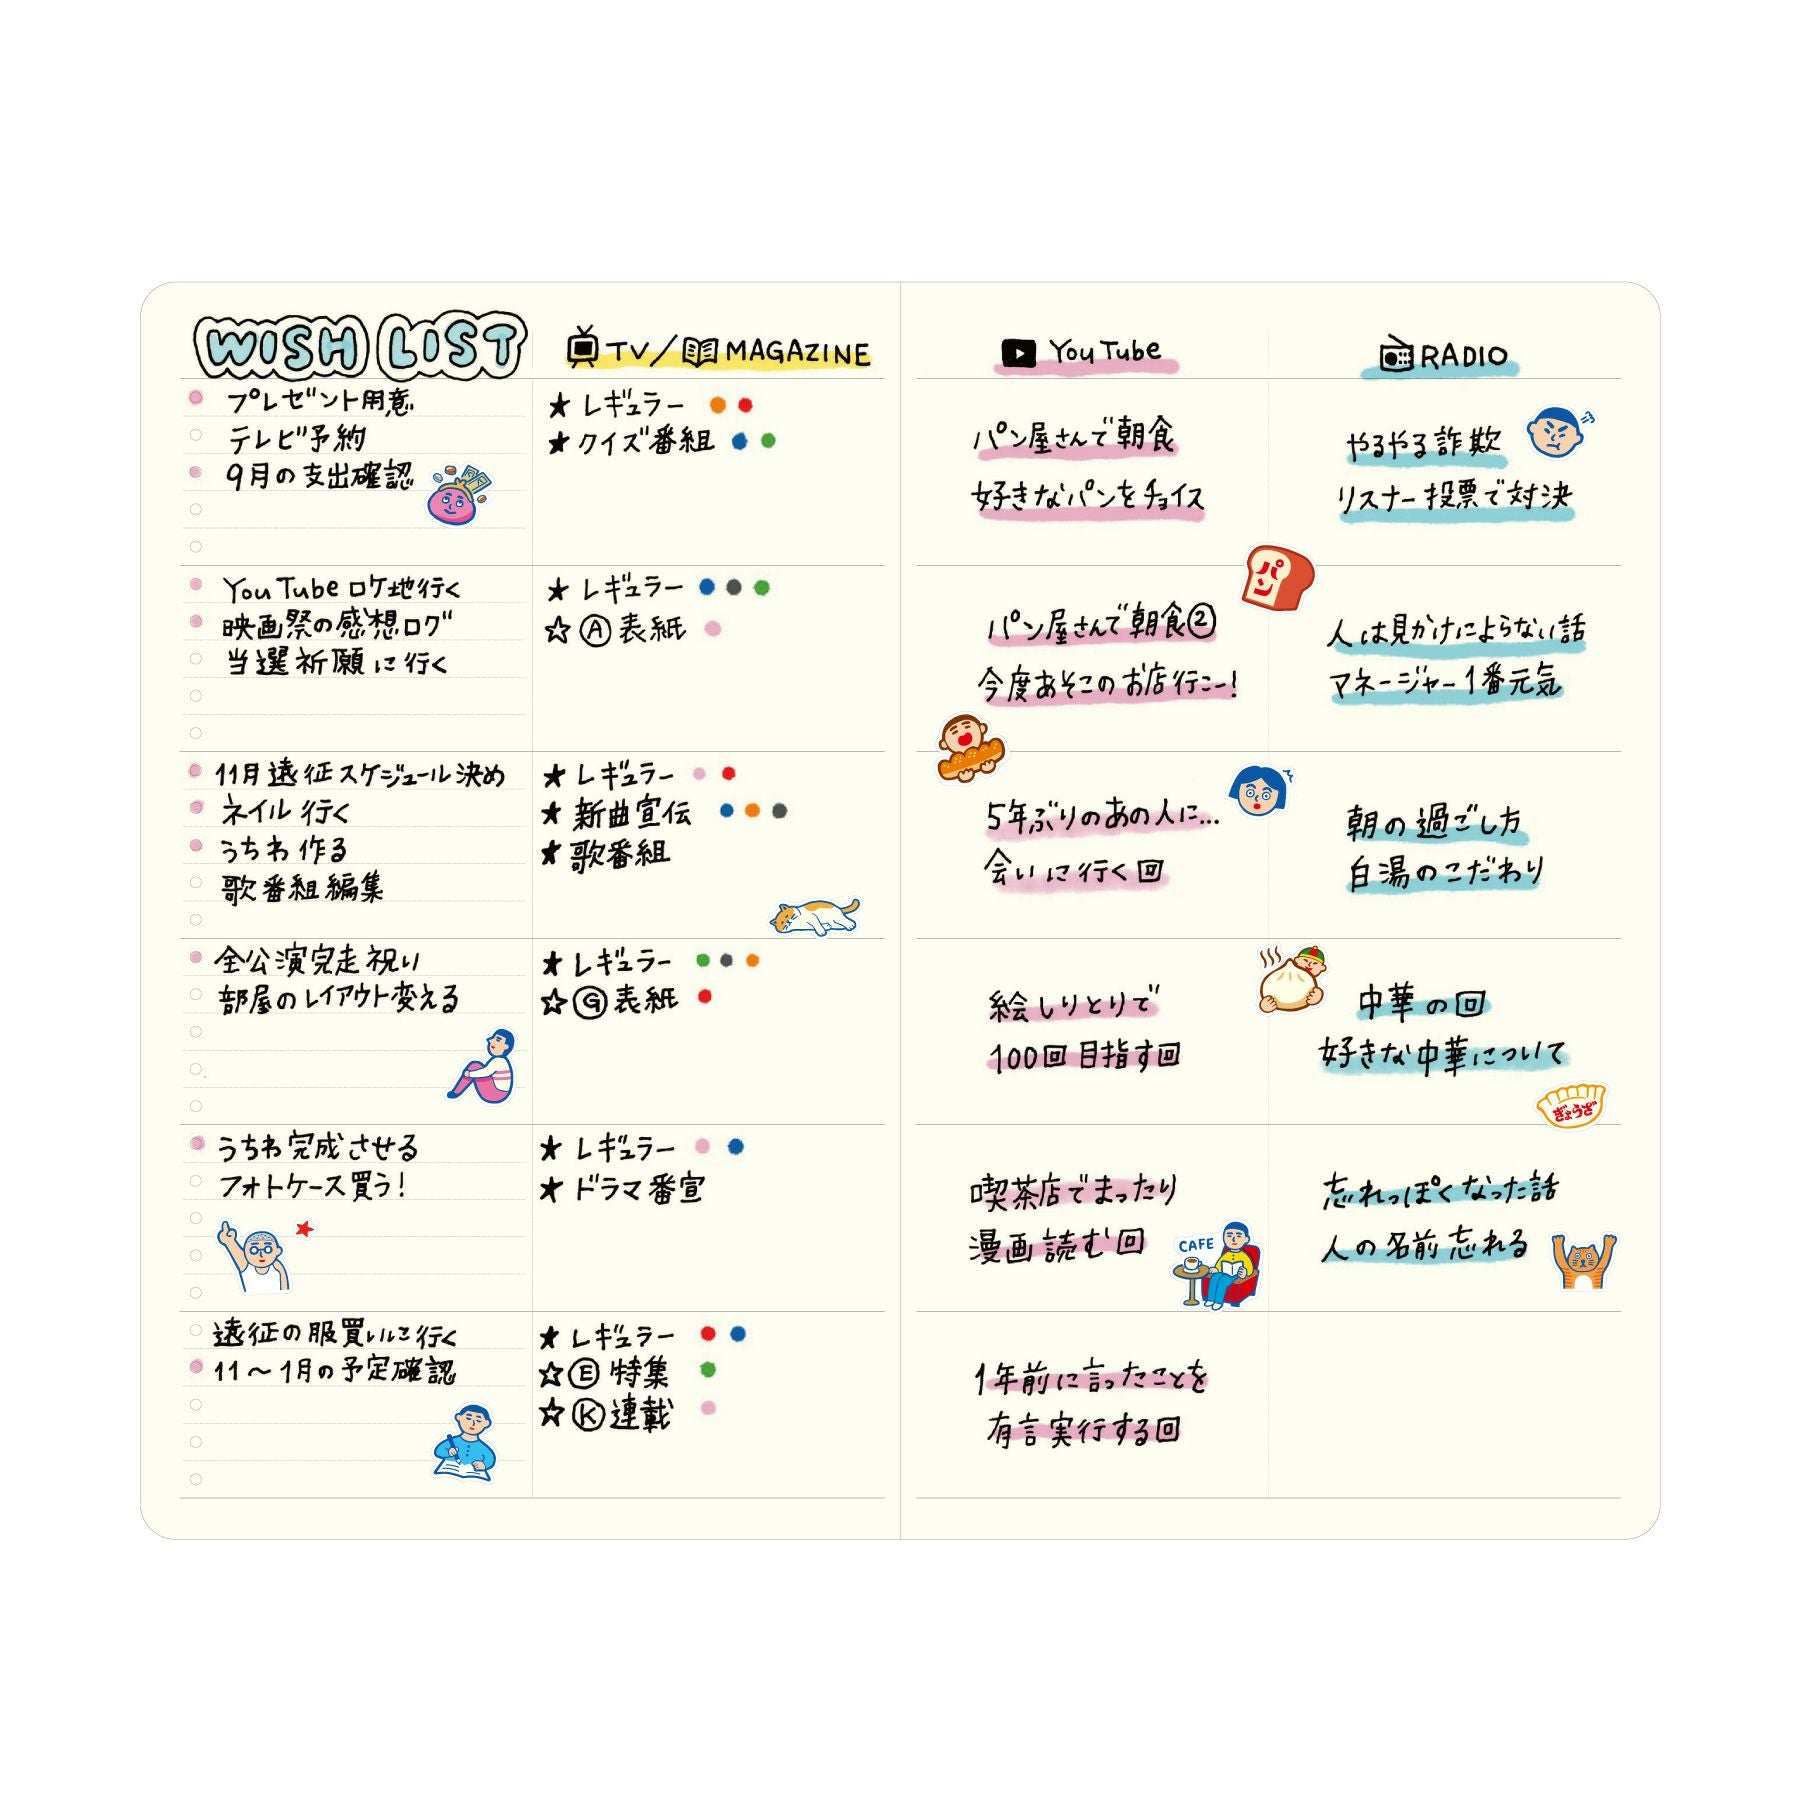 WISH LIST
プレゼント用意
テレビ予約
9月の支出確認
YouTubeロケ地行く
映画祭の感想ログ
当選祈願に行く
11月遠征スケジュール決め
ネイル行く
うちわ作る
歌番組編集
全公演完走祝い
部屋のレイアウト変える
うちわ完成させる
フォトケース買う!
遠征の服買いに行く
11〜1月の予定確認
TV/MAGAZINE
★レギュラー
★クイズ番組
★レギュラー
☆Ⓐ表紙
★レギュラー
★新曲宣伝
★歌番組
★レギュラー
☆Ⓖ表紙
★レギュラー
★ドラマ番宣
★レギュラー
☆Ⓔ特集
☆Ⓚ連載
YouTube
パン屋さんで朝食
好きなパンをチョイス
パン
パン屋さんで朝食②
今度あそこのお店行こー!
5年ぶりのあの人に…
会いに行く回
絵しりとりで
100回目指す回
喫茶店でまったり
漫画読む回
CAFE
1年前に言ったことを
有言実行する回
RADIO
やるやる詐欺
リスナー投票で対決
人は見かけによらない話
マネージャー1番元気
朝の過ごし方
白湯のこだわり
中華の回
好きな中華について
ぎょうざ
忘れっぽくなった話
人の名前忘れる